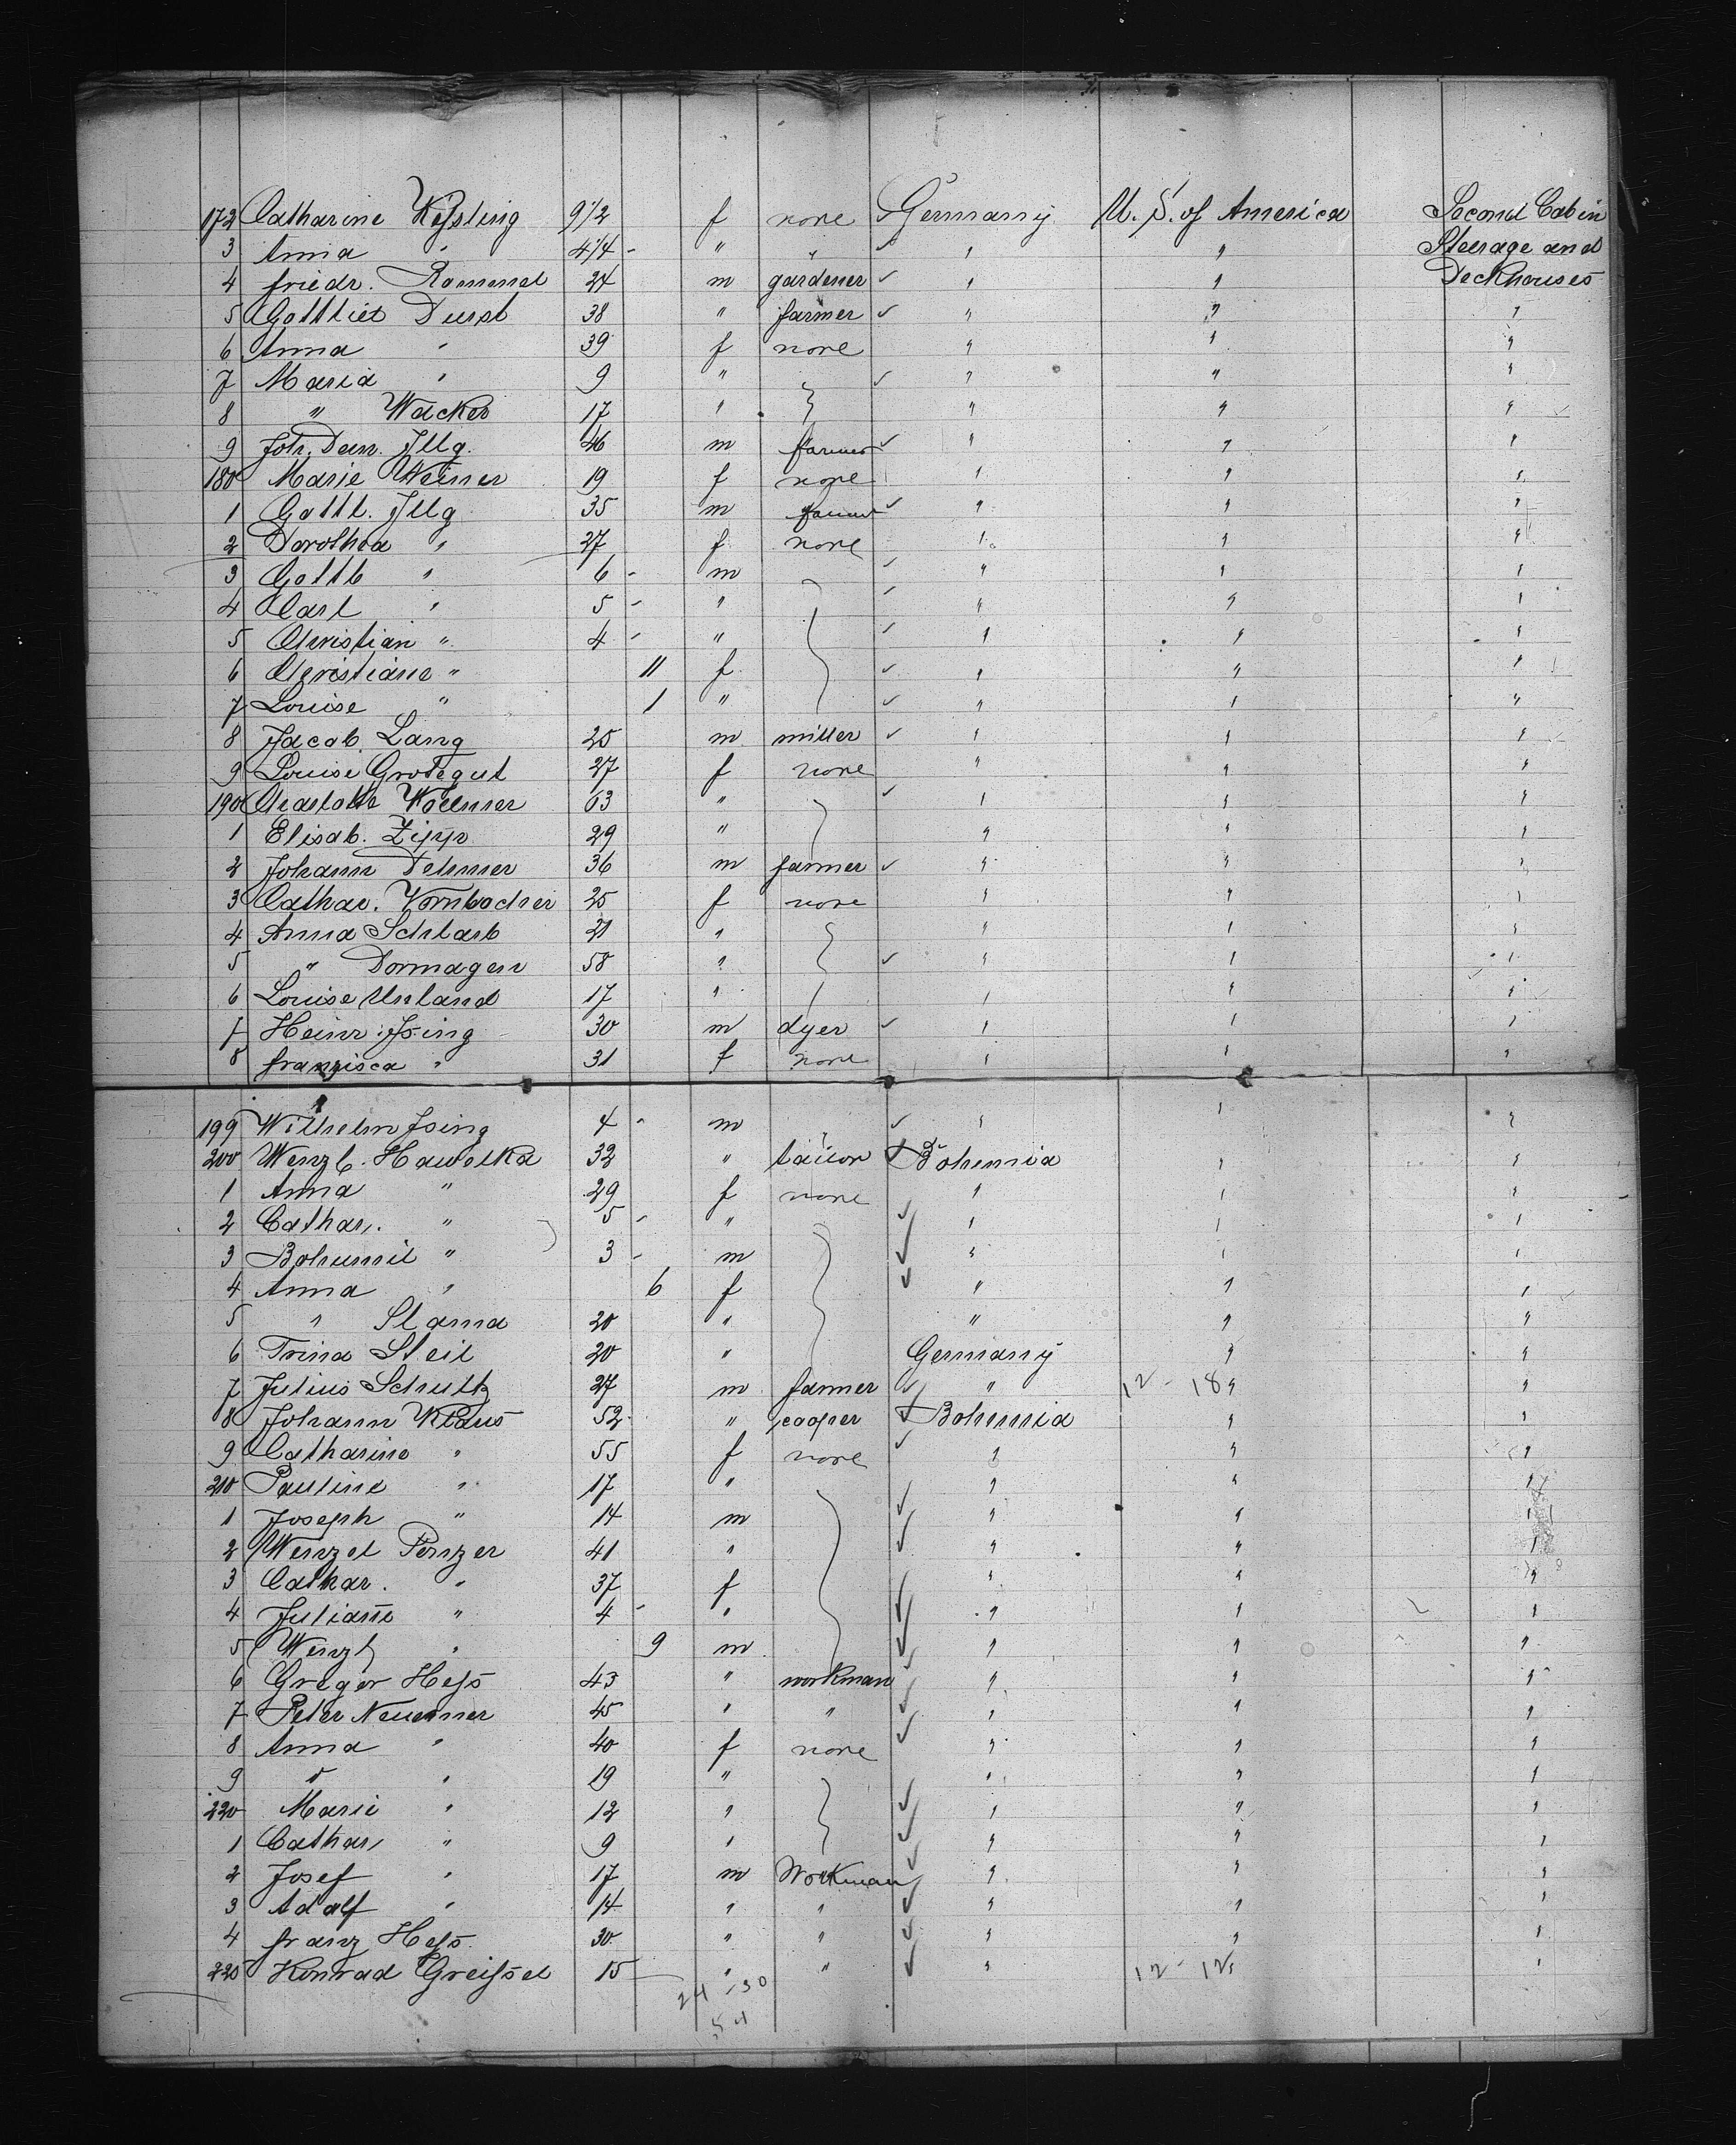 172 Catharine Kissling 9 1/2 f none Germany U. S. of America Second Cabin
3 Anna " 4 1/4 - " " " " Steerage and
4 friedr. Rommel 24 m gardener " " Deckhouses
5 Gottlieb Durst 38 " farmer " " "
6 Anna " 39 f none " " "
7 Maria " 9 " " " "
8 " Wacker 17 " " " "
9 Joh. Dan. Illg. 46 m farmer " " "
180 Marie Weiner 19 f none " " "
1 Gottl. Illg 35 m farmer " " "
2 Dorothea " 27 f none " " "
3 Gottlb " 6 - m " " "
4 Carl " 5 - " " " "
5 Christian " 4 - " " " "
6 Christiane " 11 f " " "
7 Louise " 1 " " " "
8 Jacob Lang 25 m miller " " "
9 Louise Grotegut 27 f none " " "
190 Charlotte 63 " " " "
1 Elisab. Zipp 29 " " " "
2 Johann 36 m farmer " " "
3 Cathar. Vornbocher 25 f none " " "
4 Anna Schlarb 21 " " " "
5 " Dormagen 58 " " " "
6 Louise Unland 17 " " " "
7 Heinr. Ising 30 m dyer " " "
8 franzisca " 31 f none " " "
199 Wilhelm Ising 4 - m " " " "
200 Wenzl. Hawelka 32 " tailor Bohemia " "
1 Anna " 29 f none " " "
2 Cathar. " 5 - " " " "
3 Bohumil " 3 - m " " "
4 Anna " 6 f " " "
5 " Slama 20 " " " "
6 Trina Steil 20 " Germany " "
7 Julius Schultz 27 m farmer " 12 - 18 " "
8 Johann Klaus 52 " cooper Bohemia " "
9 Catharine " 55 f none " " "
210 Pauline " 17 " " " "
1 Joseph " 14 m " " "
2 Wenzel Penzer 41 " " " "
3 Cathar. " 37 f " " "
4 Juliane " 4 - " " " "
5 Wenzl " 9 m " " "
6 Gregor Hess 43 " workman " " "
7 Peter Neuenner 45 " " " " "
8 Anna " 40 f none " " "
9 " " 19 " " " "
220 Marie " 12 " " " "
1 Cathar. " 9 " " " "
2 Josef " 17 m Workman " " "
3 Adolf " 14 " " " " "
4 franz Hess 30 " " " " "
225 Konrad Greissel 15 " " " 12 - 12 " "
24 - 30
54